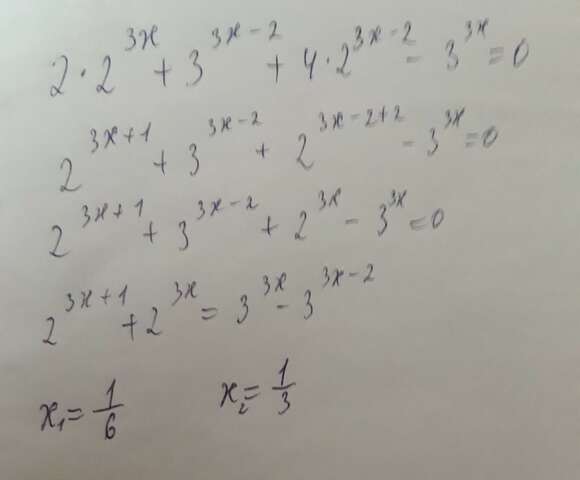 2·2^{3x} + 3^{3x-2} + 4·2^{3x-2} - 3^{3x} = 0
2^{3x+1} + 3^{3x-2} + 2^{3x-2+2} - 3^{3x} = 0
2^{3x+1} + 3^{3x-2} + 2^{3x} - 3^{3x} = 0
2^{3x+1} + 2^{3x} = 3^{3x} - 3^{3x-2}
x₁ = 1/6 x₂ = 1/3